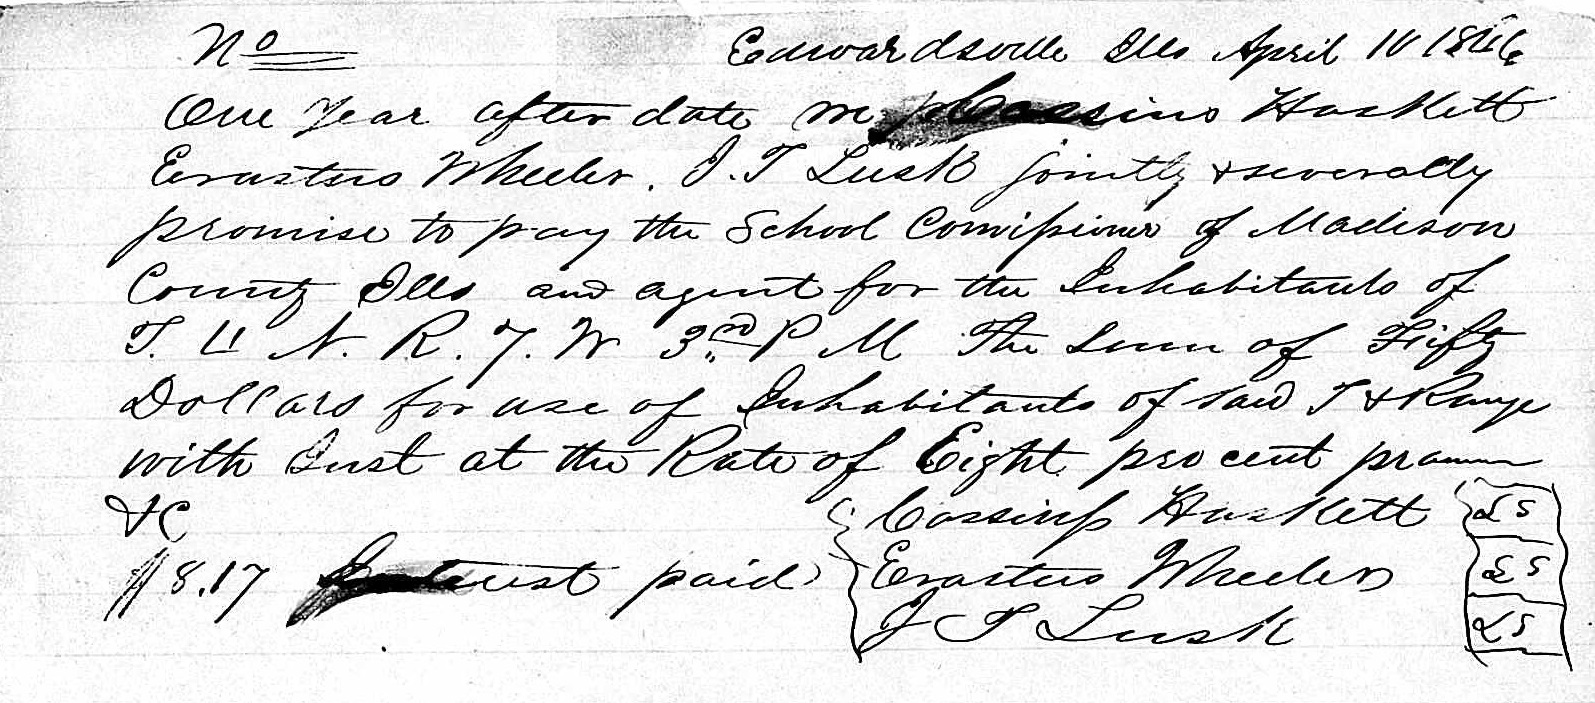 No
Edwardsville Ills April 10 1846
One Year after date we Cossins Haskett
Erastus Wheeler. J. T Lusk jointly & severally
promise to pay the School Commissioner of Madison
County Ills and agent for the Inhabitants of
T. 4 N. R. 7. W 3rd P M The sum of Fifty
Dollars for use of Inhabitants of said T & Range
with Inst at the Rate of Eight pro cent pr annum
&C
Cossins Haskett LS
$8.17 Interest paid Erastus Wheeler LS
J T Lusk LS